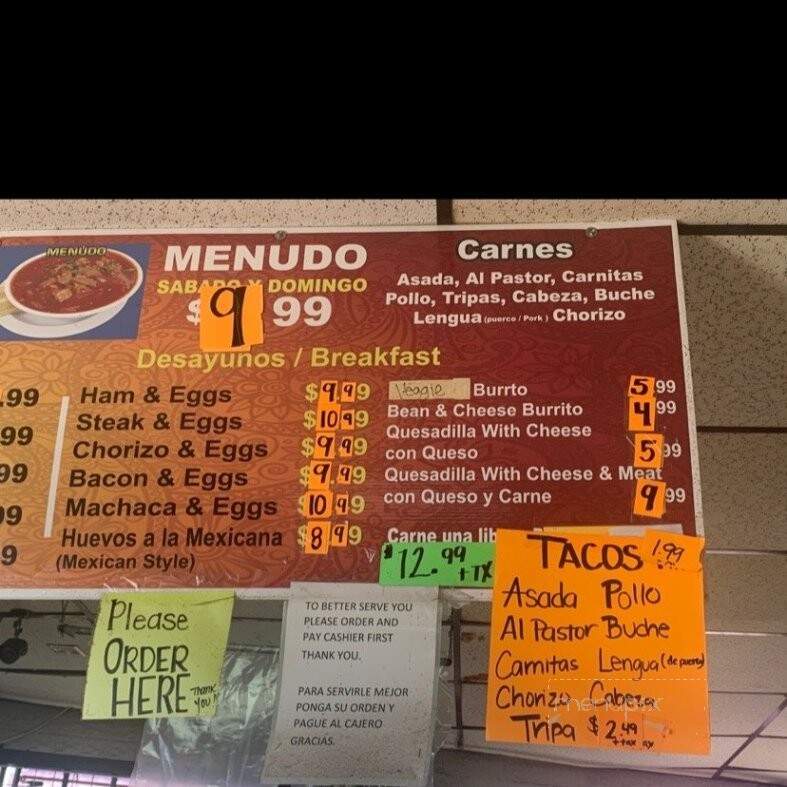 MENUDO
MENUDO
SABADO Y DOMINGO
$9 99
Carnes
Asada, Al Pastor, Carnitas
Pollo, Tripas, Cabeza, Buche
Lengua (puerco / Pork) Chorizo
Desayunos / Breakfast
.99
99
99
99
9
Ham & Eggs $9.99
Steak & Eggs $10.99
Chorizo & Eggs $9.99
Bacon & Eggs $9.99
Machaca & Eggs $10.99
Huevos a la Mexicana $8.99
(Mexican Style)
Veggie Burrto 5.99
Bean & Cheese Burrito 4.99
Quesadilla With Cheese
con Queso 5.99
Quesadilla With Cheese & Meat
con Queso y Carne 9.99
Carne una lib
$12.99 +TX
TACOS 1.99
Asada Pollo
Al Pastor Buche
Carnitas Lengua (de puerco)
Chorizo Cabeza
Tripa $2.49
+tax
Please
ORDER
HERE Thank
you!
TO BETTER SERVE YOU
PLEASE ORDER AND
PAY CASHIER FIRST
THANK YOU.
PARA SERVIRLE MEJOR
PONGA SU ORDEN Y
PAGUE AL CAJERO
GRACIAS.